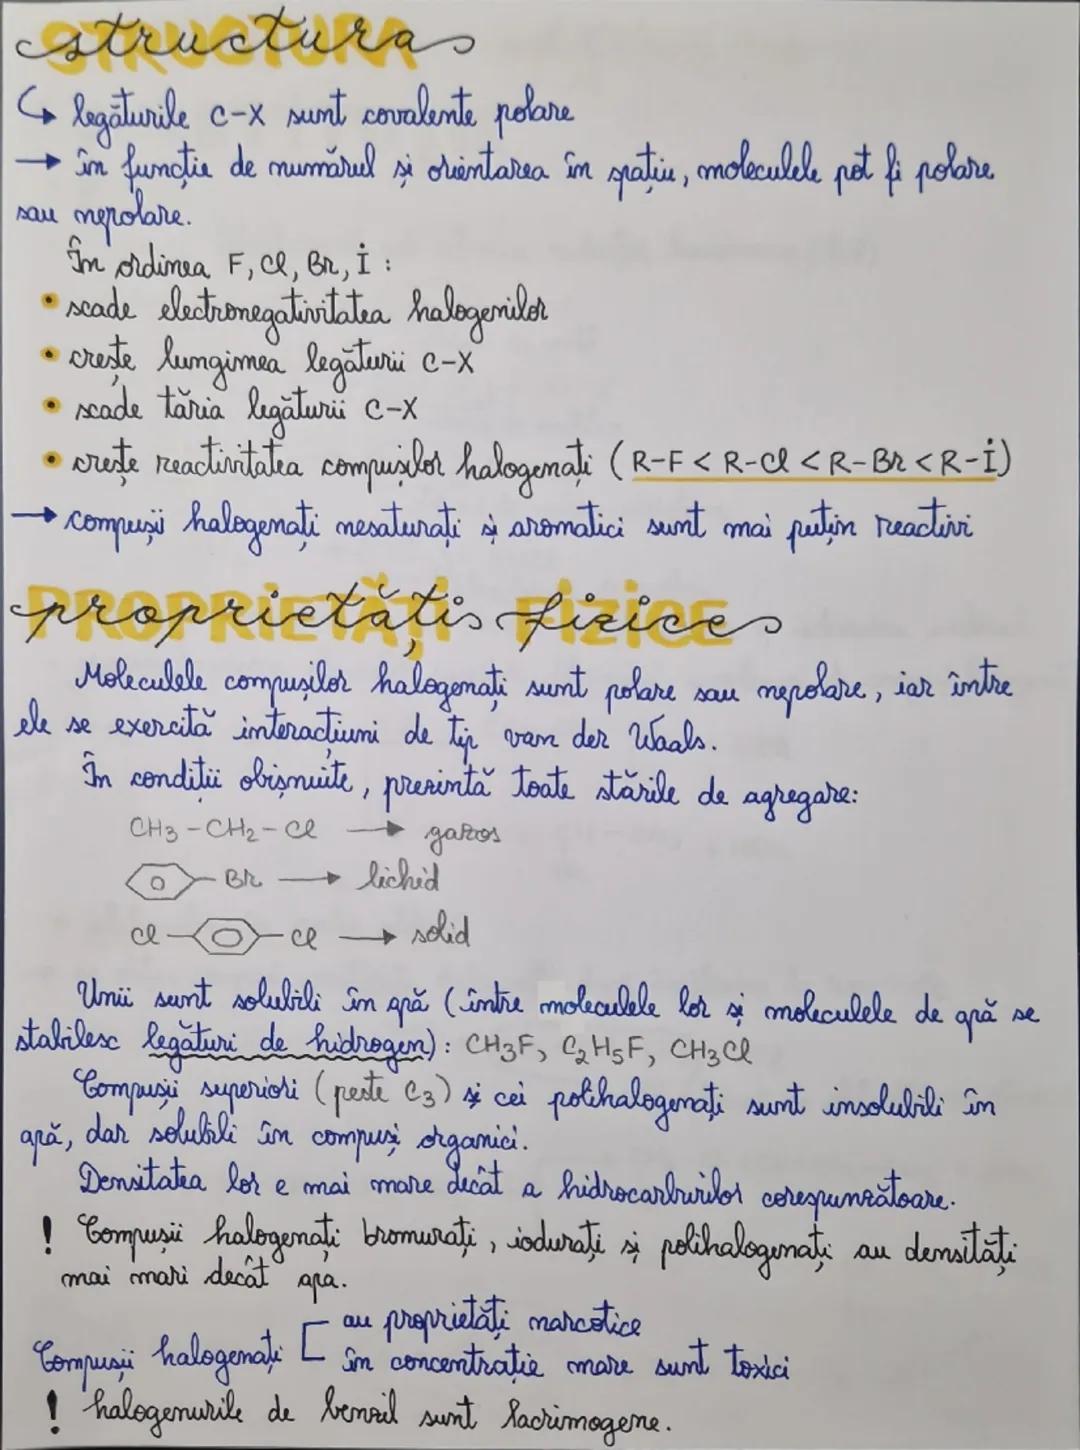 structura
↳ legăturile C-X sunt covalente polare
→ în funcție de numărul și orientarea în spațiu, moleculele pot fi polare
sau nepolare.
În ordinea F, Cl, Br, I :
• scade electronegativitatea halogenilor
• crește lungimea legăturii C-X
• scade tăria legăturii C-X
• crește reactivitatea compușilor halogenați (R-F < R-Cl < R-Br < R-I)
→ compușii halogenați nesaturați și aromatici sunt mai puțin reactivi
proprietăți fizice
Moleculele compușilor halogenați sunt polare sau nepolare, iar între
ele se exercită interacțiuni de tip van der Waals.
În condiții obișnuite, prezintă toate stările de agregare:
CH3 - CH2 - Cl → gazos
Br → lichid
Cl Cl → solid
Unii sunt solubili în apă (între moleculele lor și moleculele de apă se
stabilesc legături de hidrogen): CH3F, C2H5F, CH3Cl
Compușii superiori (peste C3) și cei polihalogenați sunt insolubili în
apă, dar solubili în compuși organici.
Densitatea lor e mai mare decât a hidrocarburilor corespunzătoare.
! Compușii halogenați bromurați, iodurați și polihalogenați au densități
mai mari decât apa.
Compușii halogenați [ au proprietăți narcotice
în concentrație mare sunt toxici
! halogenurile de benzil sunt lacrimogene.